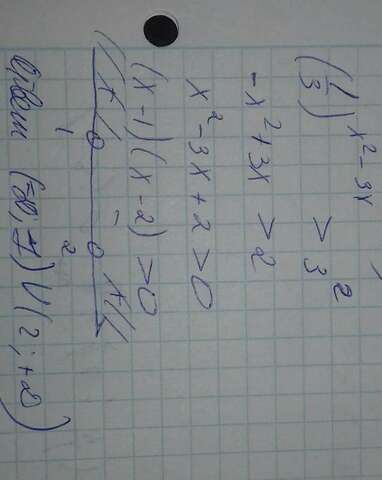 (1/3)^(x²-3x) > 3²
-x²+3x > 2
x²-3x+2 > 0
(x-1)(x-2) > 0
+ - +
1 2
Ответ (-∞, 1) U (2; +∞)